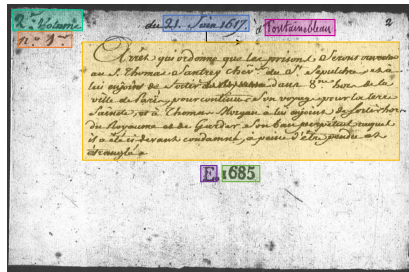 2e Volume du 21. Juin 1617. à Fontainebleau 2
n.° 1er
Arrest qui ordonne que les présens seront
au Sr. Thomas Santrey chever. du St. Sepulchre et à
lui enjoint de sortir dans 8ne. hors de la
ville de Paris pour continuer son voyage pour la terre
Sainte, et à Thomas Moyan a lui enjoint de sortir hors
du Royaume et de garder son ban perpetuel auquel
il a été cidevant condamné, a peine d'être pendu et
étranglé
E. 1685